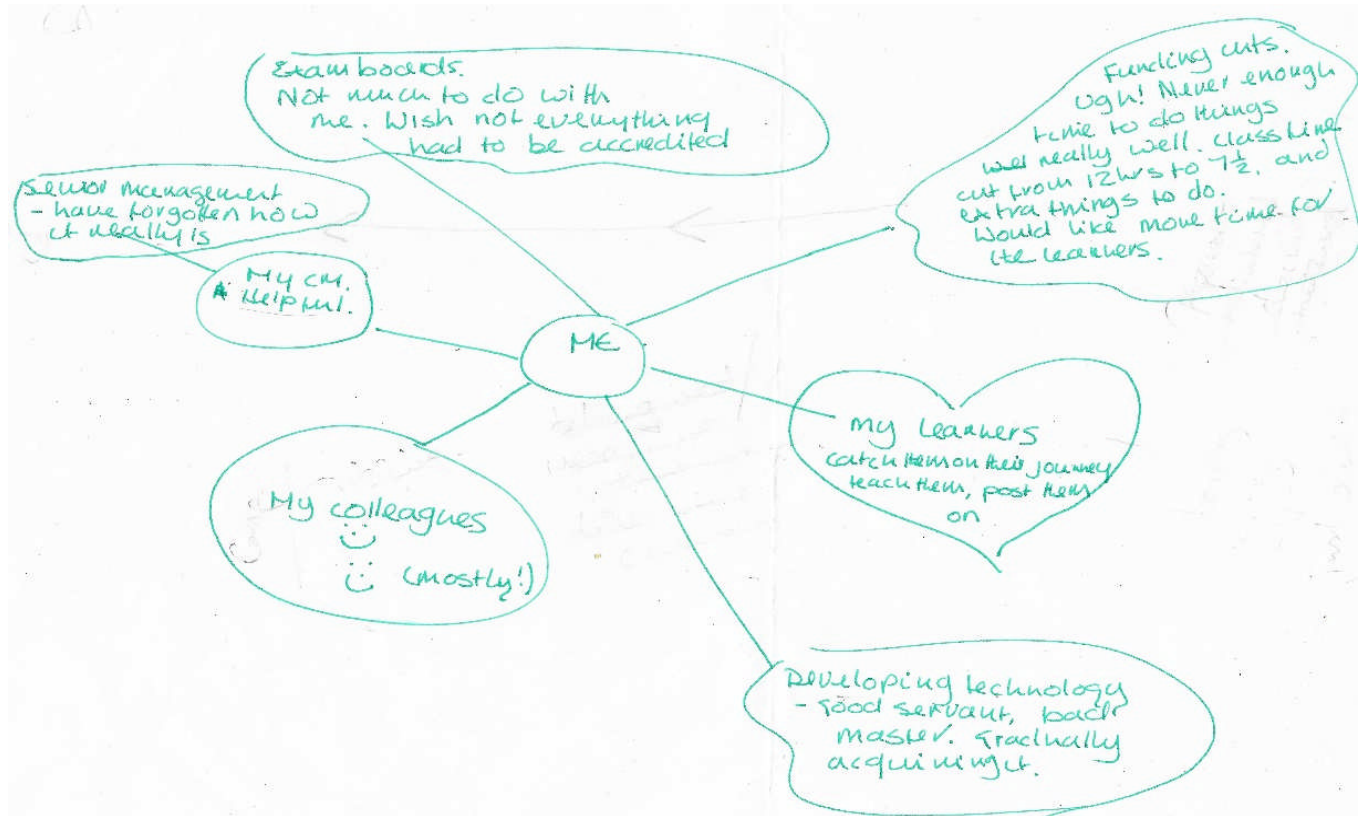 Exam boards.
Not much to do with
me. Wish not everything
had to be accredited
Funding cuts.
Ugh! Never enough
time to do things
really well. Class time
cut from 12hrs to 7½, and
extra things to do.
Would like more time for
the learners.
Senior management
- have forgotten how
it really is
My CM.
Helpful.
ME
My learners
catch them on their journey
teach them, post them
on
My colleagues
(mostly!)
Developing technology
- good servant, bad
master. Gradually
acquiring it.